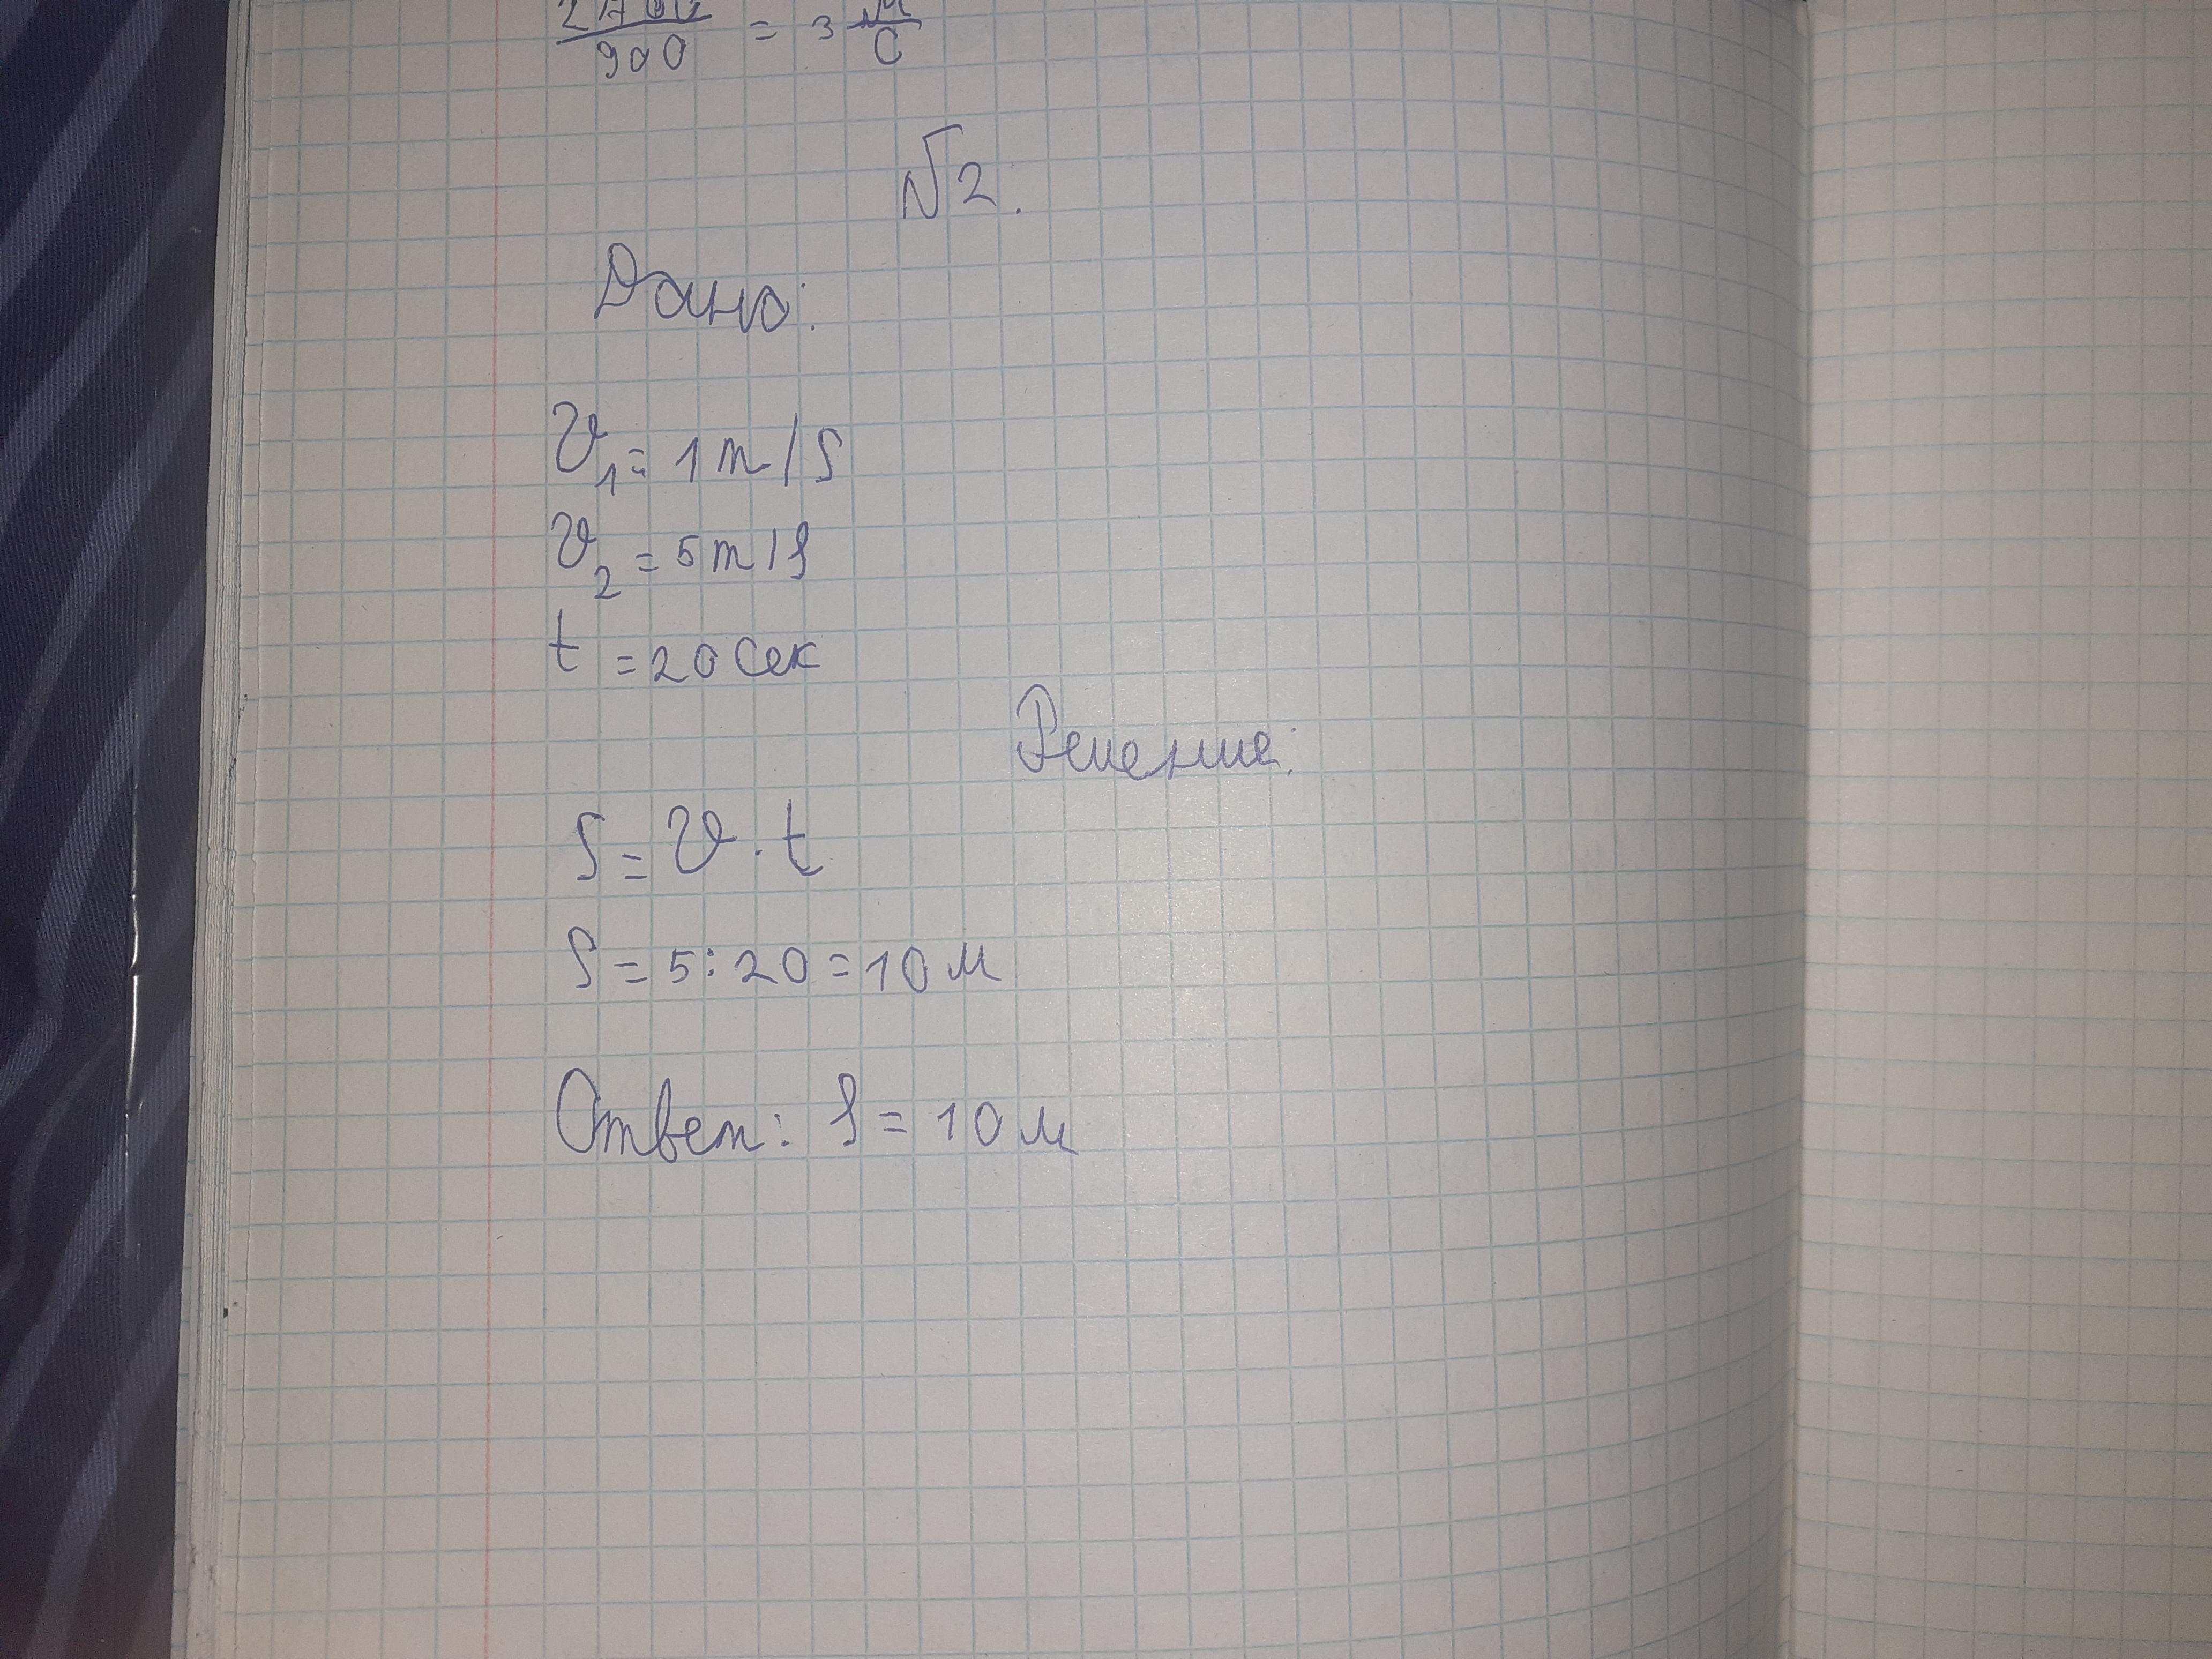 900 = 3 м/с
№2.
Дано:
V₁ = 1 m/s
V₂ = 5 m/s
t = 20 сек
Решение:
S = V · t
S = 5 : 20 = 10 м
Ответ: S = 10 м